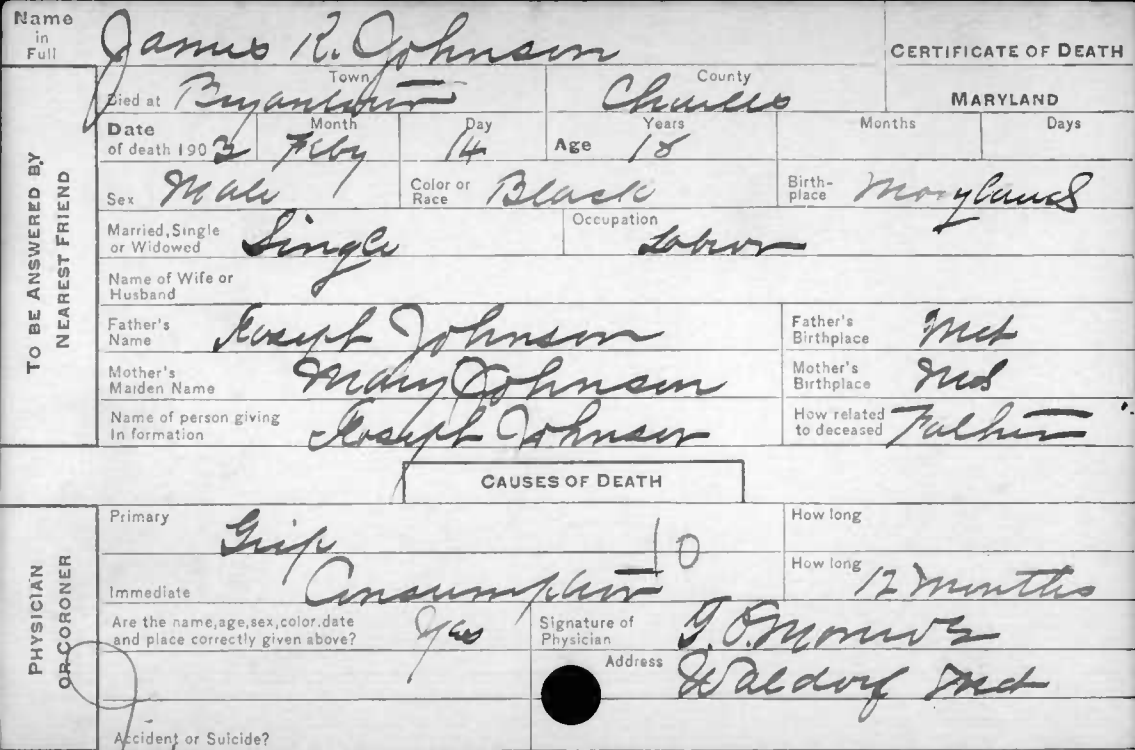 Name in Full James R. Johnson
CERTIFICATE OF DEATH
TO BE ANSWERED BY NEAREST FRIEND
Died at Bryantown Town Charles County MARYLAND
Date of death 1903 Month Feby Day 14 Age Years 18 Months Days
Sex Male Color or Race Black Birth-place Maryland
Married, Single or Widowed Single Occupation Labor
Name of Wife or Husband
Father's Name Joseph Johnson Father's Birthplace Md
Mother's Maiden Name Mary Johnson Mother's Birthplace Md
Name of person giving In formation Joseph Johnson How related to deceased Father
CAUSES OF DEATH
PHYSICIAN OR CORONER
Primary Grip 10 How long
Immediate Consumption How long 12 Months
Are the name, age, sex, color, date and place correctly given above? Yes Signature of Physician
Address Waldorf Md
Accident or Suicide?